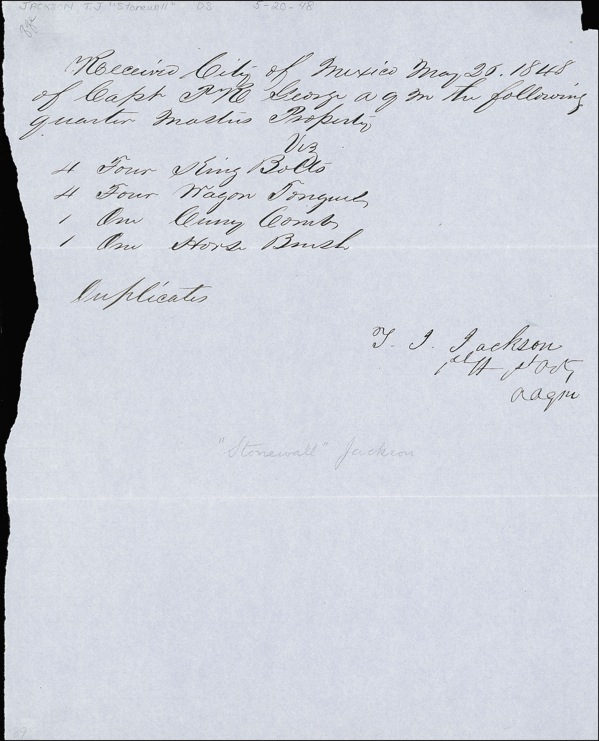 JACKSON, T.J "Stonewall" DS 5-20-48
Received City of Mexico May 20. 1848
of Capt George a q m the following
quarter Masters Property
Viz
4 Four King Bolts
4 Four Wagon Tongues
1 One Curry Comb
1 One Horse Brush
Duplicates
T. J. Jackson
1st Lt 1st Arty
a a q m
"Stonewall" Jackson